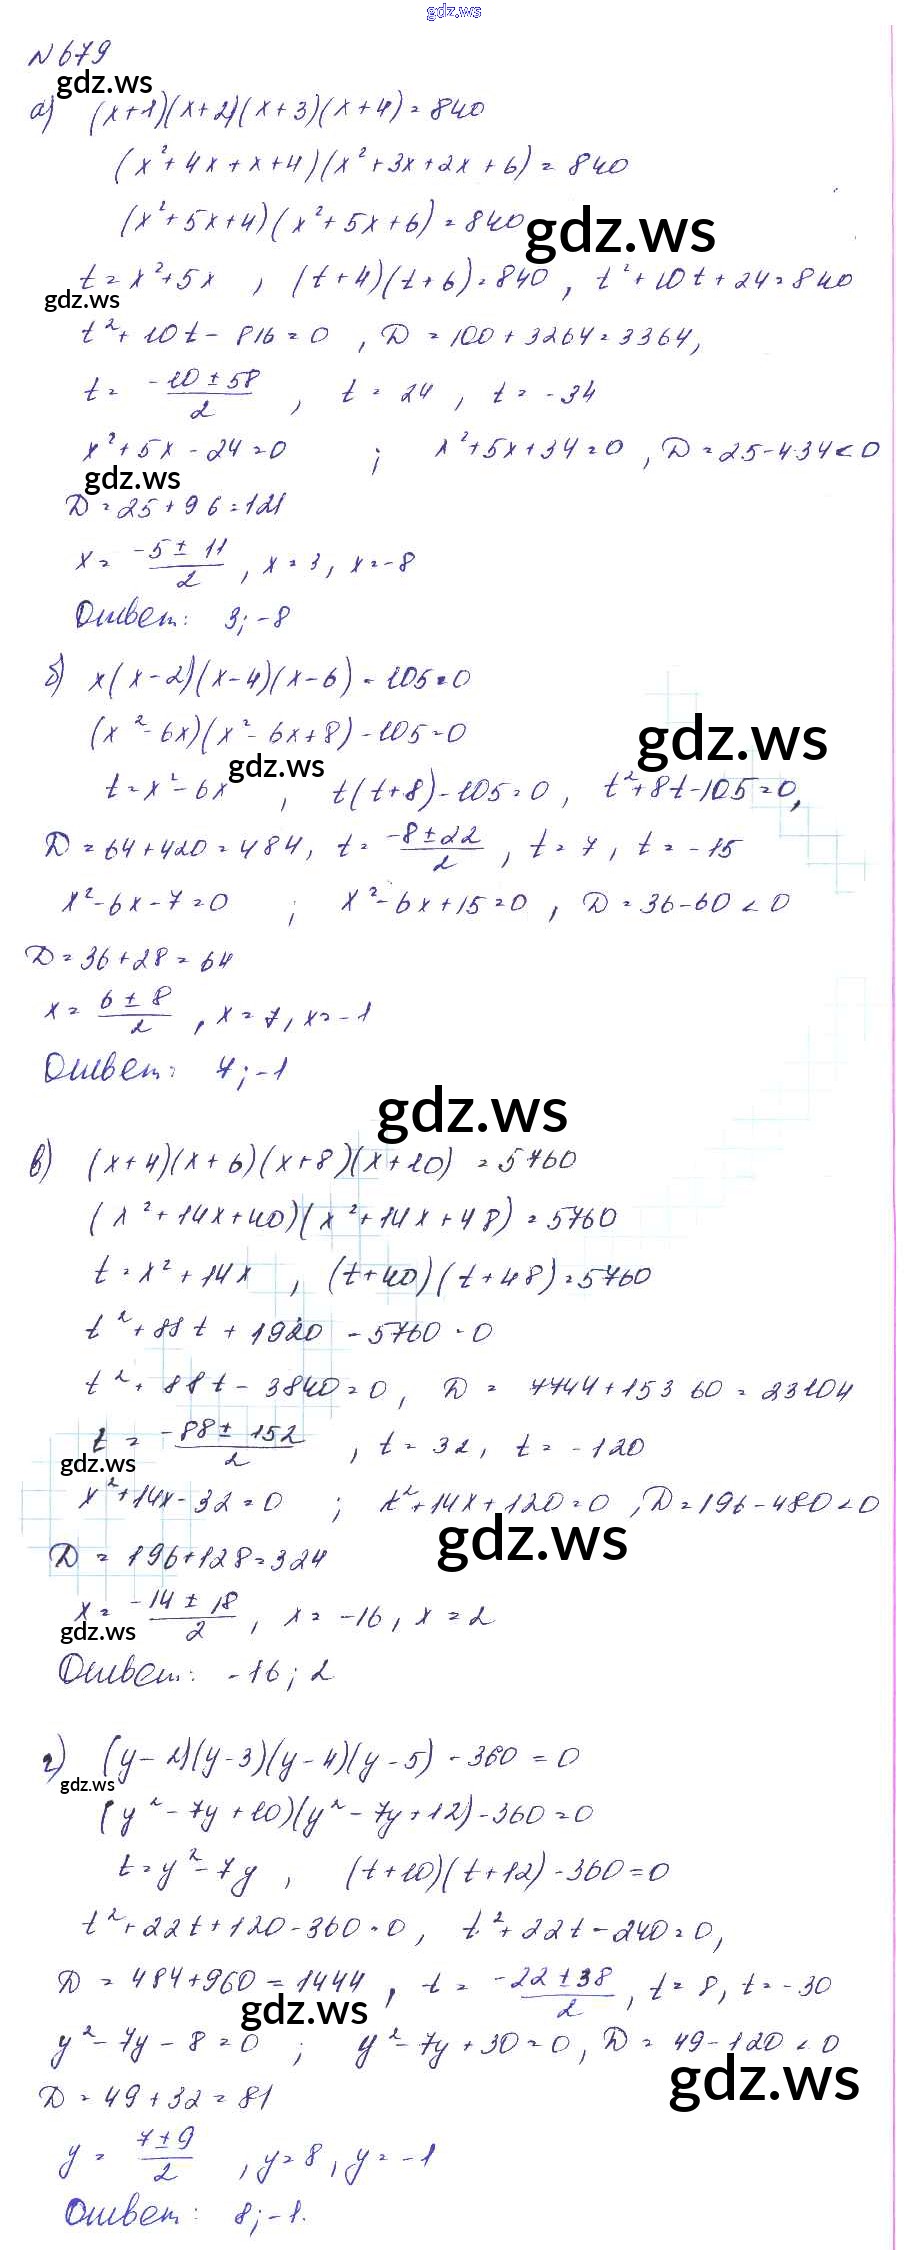 gdz.ws
N 679
gdz.ws
а) (x+1)(x+2)(x+3)(x+4)=840
(x²+4x+x+4)(x²+3x+2x+6)=840
(x²+5x+4)(x²+5x+6)=840
gdz.ws
t=x²+5x , (t+4)(t+6)=840, t²+10t+24=840
gdz.ws
t²+10t-816=0 , D=100+3264=3364,
t= (-10±58)/2 , t=24 , t=-34
x²+5x-24=0 ; x²+5x+34=0 , D=25-4·34<0
gdz.ws
D=25+96=121
x= (-5±11)/2 , x=3, x=-8
Ответ: 3; -8
б) x(x-2)(x-4)(x-6)-105=0
(x²-6x)(x²-6x+8)-105=0
gdz.ws
gdz.ws
t=x²-6x , t(t+8)-105=0 , t²+8t-105=0,
D=64+420=484, t= (-8±22)/2 , t=7, t=-15
x²-6x-7=0 ; x²-6x+15=0 , D=36-60<0
D=36+28=64
x= (6±8)/2 , x=7, x=-1
Ответ: 7; -1
gdz.ws
в) (x+4)(x+6)(x+8)(x+10)=5760
(x²+14x+40)(x²+14x+48)=5760
t=x²+14x , (t+40)(t+48)=5760
t²+88t+1920-5760=0
t²+88t-3840=0, D= 7744+15360=23104
t= (-88±152)/2 , t=32, t=-120
gdz.ws
x²+14x-32=0 ; x²+14x+120=0 , D=196-480<0
gdz.ws
D=196+128=324
x= (-14±18)/2 , x=-16, x=2
gdz.ws
Ответ: -16; 2
г) (y-2)(y-3)(y-4)(y-5)-360=0
gdz.ws
(y²-7y+10)(y²-7y+12)-360=0
t=y²-7y , (t+10)(t+12)-360=0
t²+22t+120-360=0, t²+22t-240=0,
D=484+960=1444 , t= (-22±38)/2 , t=8, t=-30
gdz.ws
y²-7y-8=0 ; y²-7y+30=0, D=49-120<0
gdz.ws
D=49+32=81
y= (7±9)/2 , y=8, y=-1
Ответ: 8; -1.